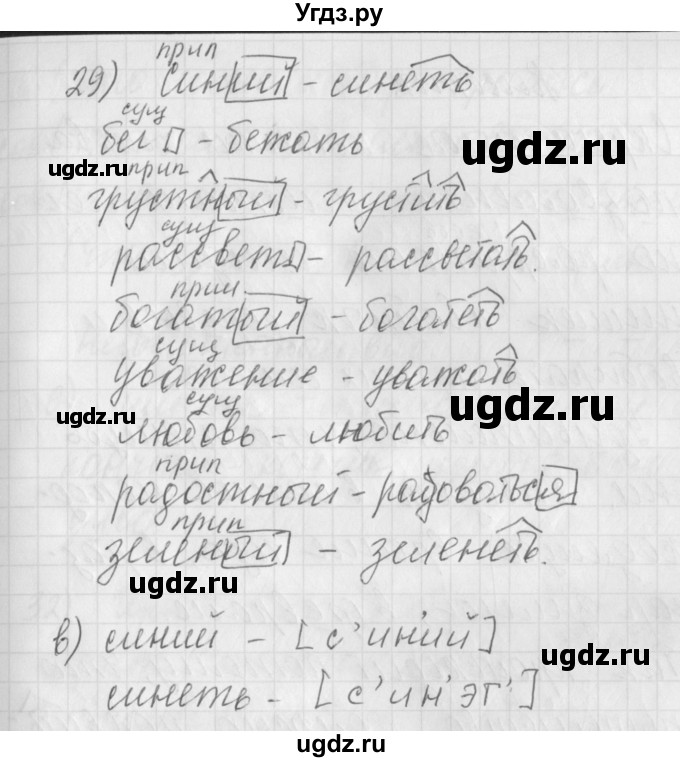 Угдз.ру
прил
29) синий - синеть
сущ
бег - бежать
ugdz.ru
ugdz.ru
прил
грустный - грустить
сущ
рассвет - рассветать.
прил.
богатый - богатеть
сущ
уважение - уважать
ugdz.ru
ugdz.ru
сущ
любовь - любить
прил
радостный - радоваться
прил
зеленый - зеленеть.
ugdz.ru
ugdz.ru
в) синий - [с'ин'ий]
синеть - [с'ин'эт']
ugdz.ru
ugdz.ru